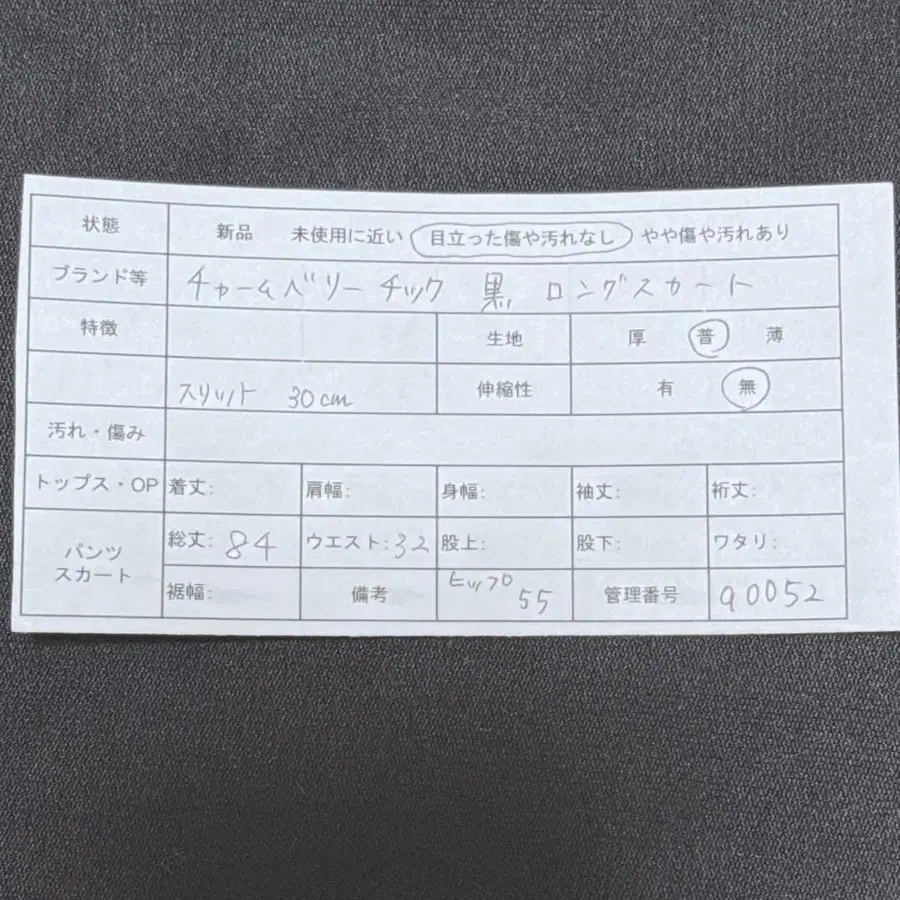 状態 新品 未使用に近い 目立った傷や汚れなし やや傷や汚れあり
ブランド等 チャームベリーチック 黒 ロングスカート
特徴 生地 厚 普 薄
スリット 30cm 伸縮性 有 無
汚れ・傷み
トップス・OP 着丈: 肩幅: 身幅: 袖丈: 裄丈:
パンツ スカート 総丈: 84 ウエスト: 32 股上: 股下: ワタリ:
裾幅: 備考 ヒップ 55 管理番号 90052